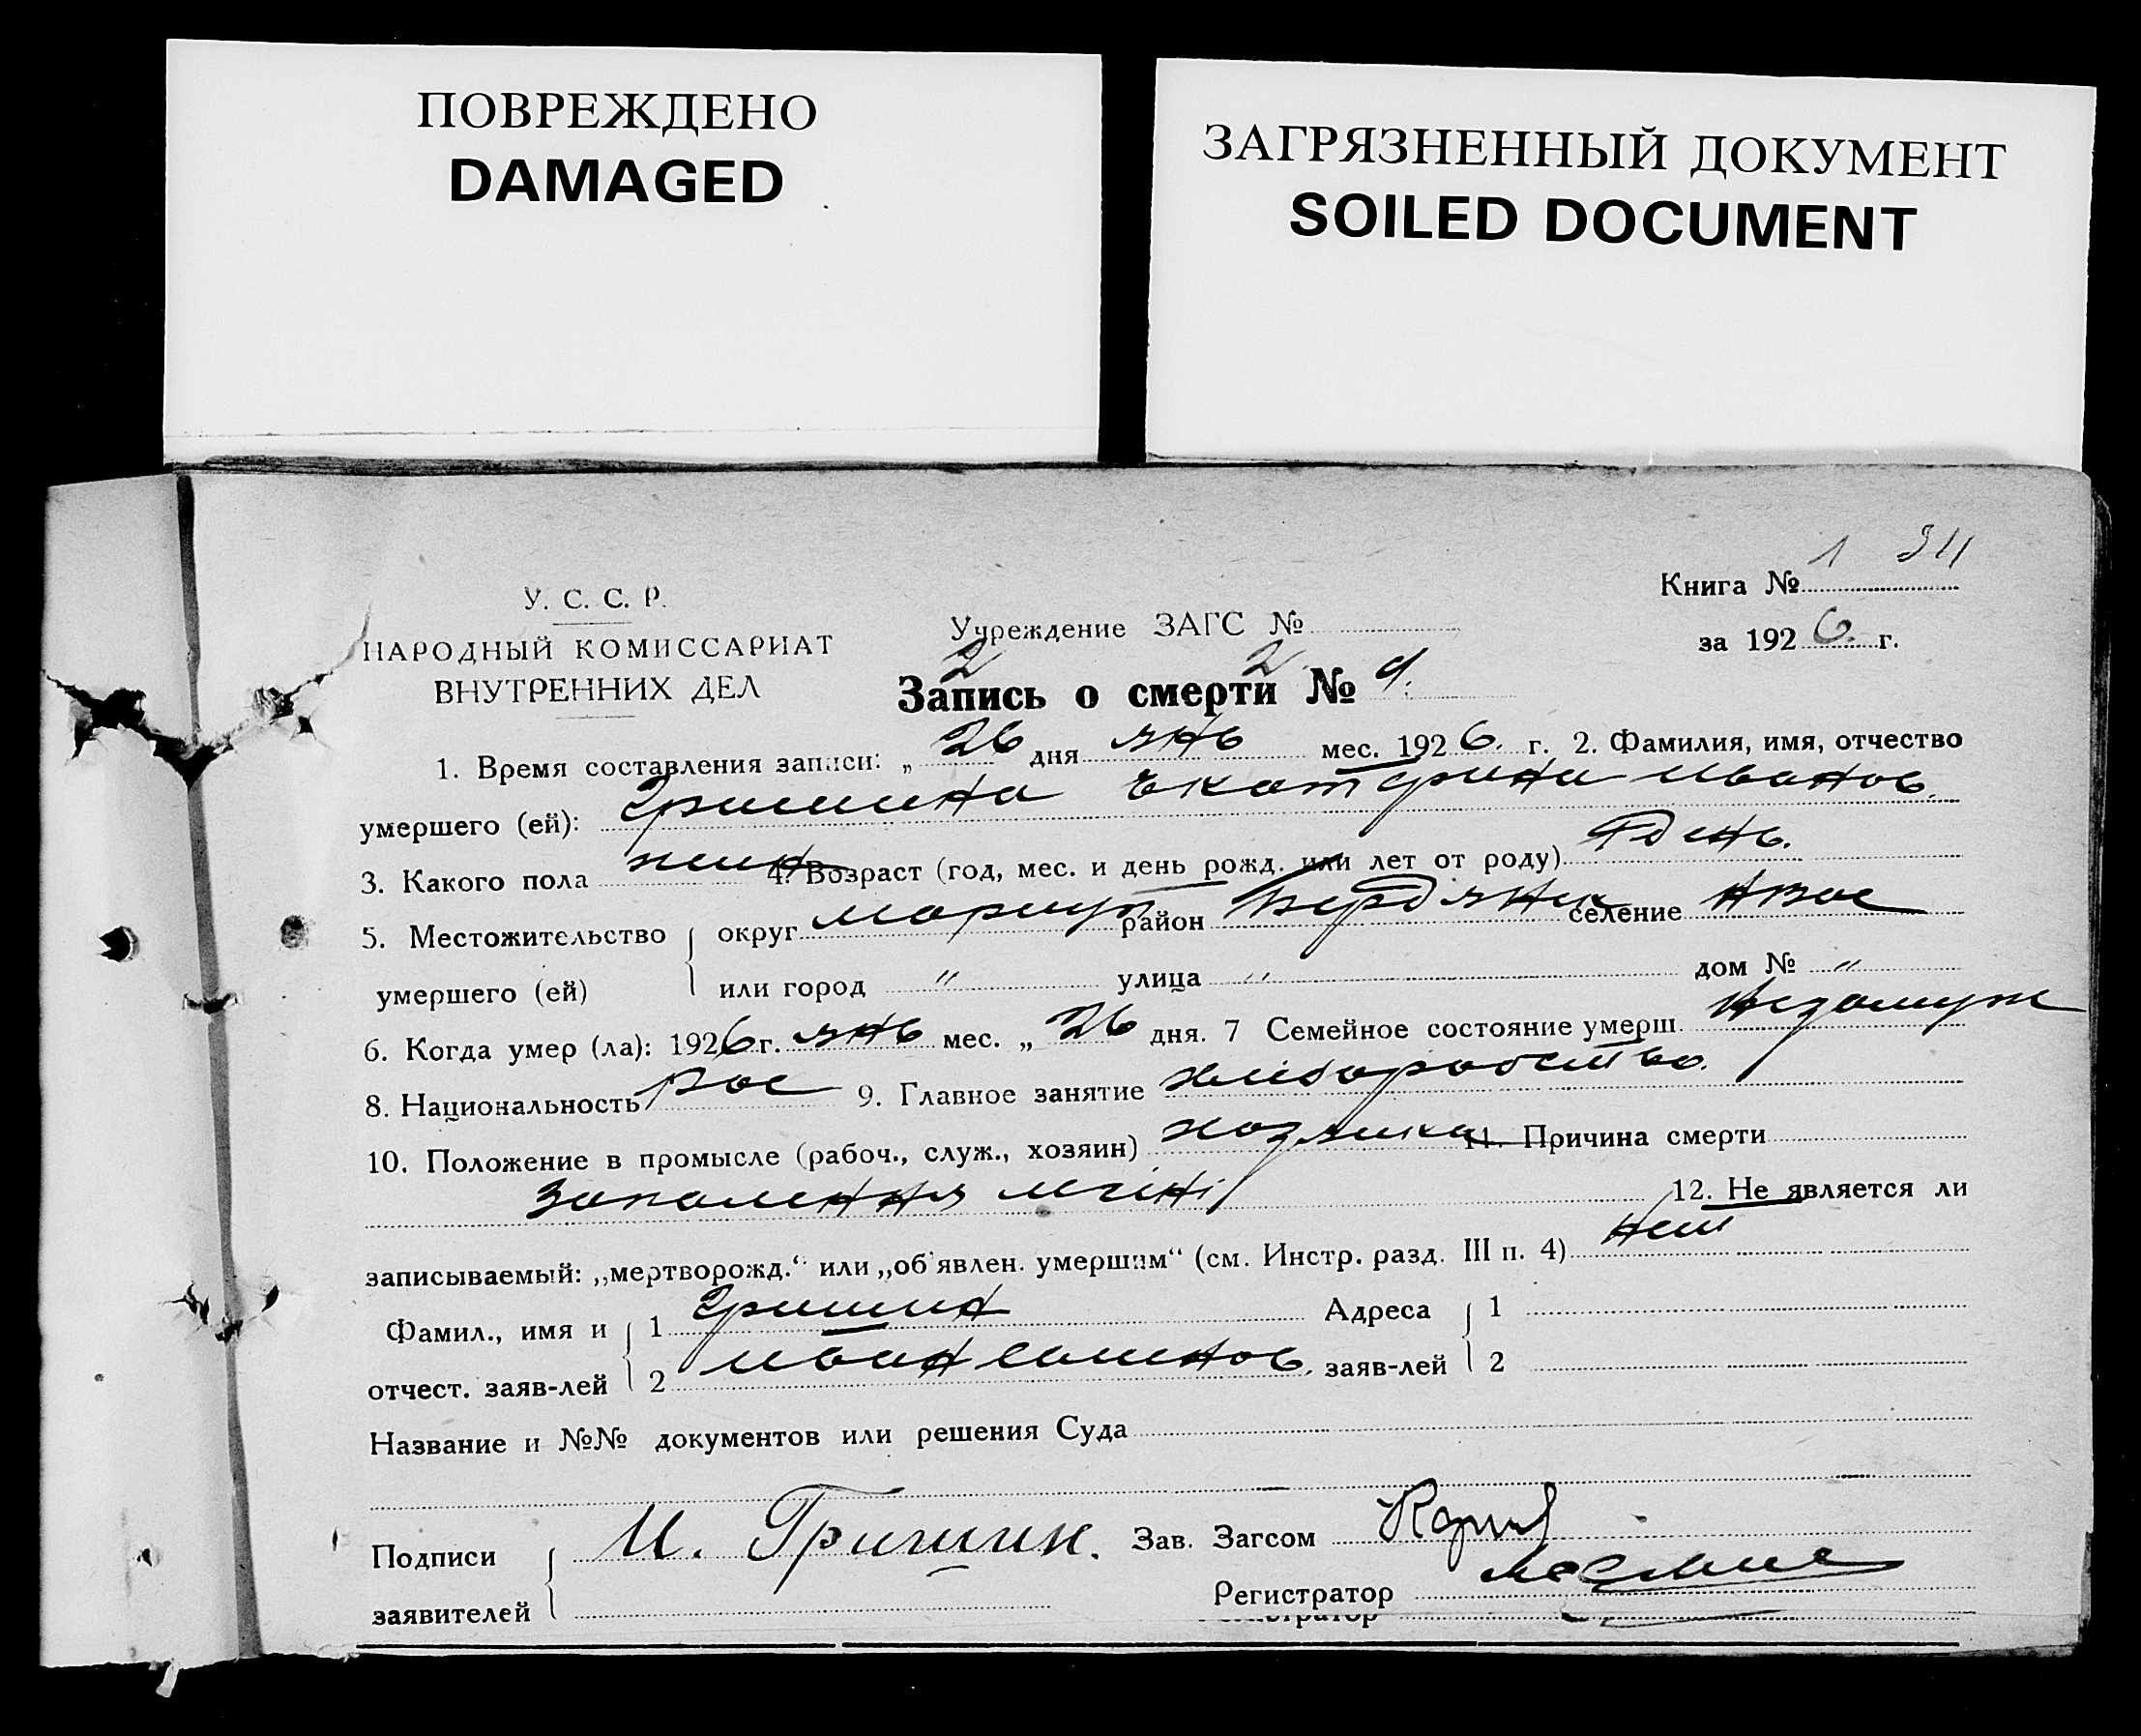 ПОВРЕЖДЕНО
DAMAGED
ЗАГРЯЗНЕННЫЙ ДОКУМЕНТ
SOILED DOCUMENT
У. С. С. Р.
НАРОДНЫЙ КОМИССАРИАТ
ВНУТРЕННИХ ДЕЛ
Учреждение ЗАГС №
Книга № 1
за 1926 г.
2 2
Запись о смерти №
1. Время составления записи: „ 26 дня янв мес. 1926 г. 2. Фамилия, имя, отчество
умершего (ей): Гришина Екатерина Иванов.
3. Какого пола жен 4. Возраст (год, мес. и день рожд. или лет от роду) день.
5. Местожительство округ Мариуп район Бердянск селение
умершего (ей) или город " улица " дом № "
6. Когда умер (ла): 1926 г. янв мес. „ 26 дня. 7 Семейное состояние умерш. незамуж
8. Национальность Рос 9. Главное занятие хлiборобство.
10. Положение в промысле (рабоч., служ., хозяин) хозяика 11. Причина смерти
запаления 12. Не является ли
записываемый: „мертворожд.“ или „об'явлен. умершим“ (см. Инстр. разд. III п. 4) нет
Фамил., имя и 1 Гришин Адреса 1
отчест. заяв-лей 2 Иван заяв-лей 2
Название и №№ документов или решения Суда
Подписи И. Гришин. Зав. Загсом
заявителей Регистратор